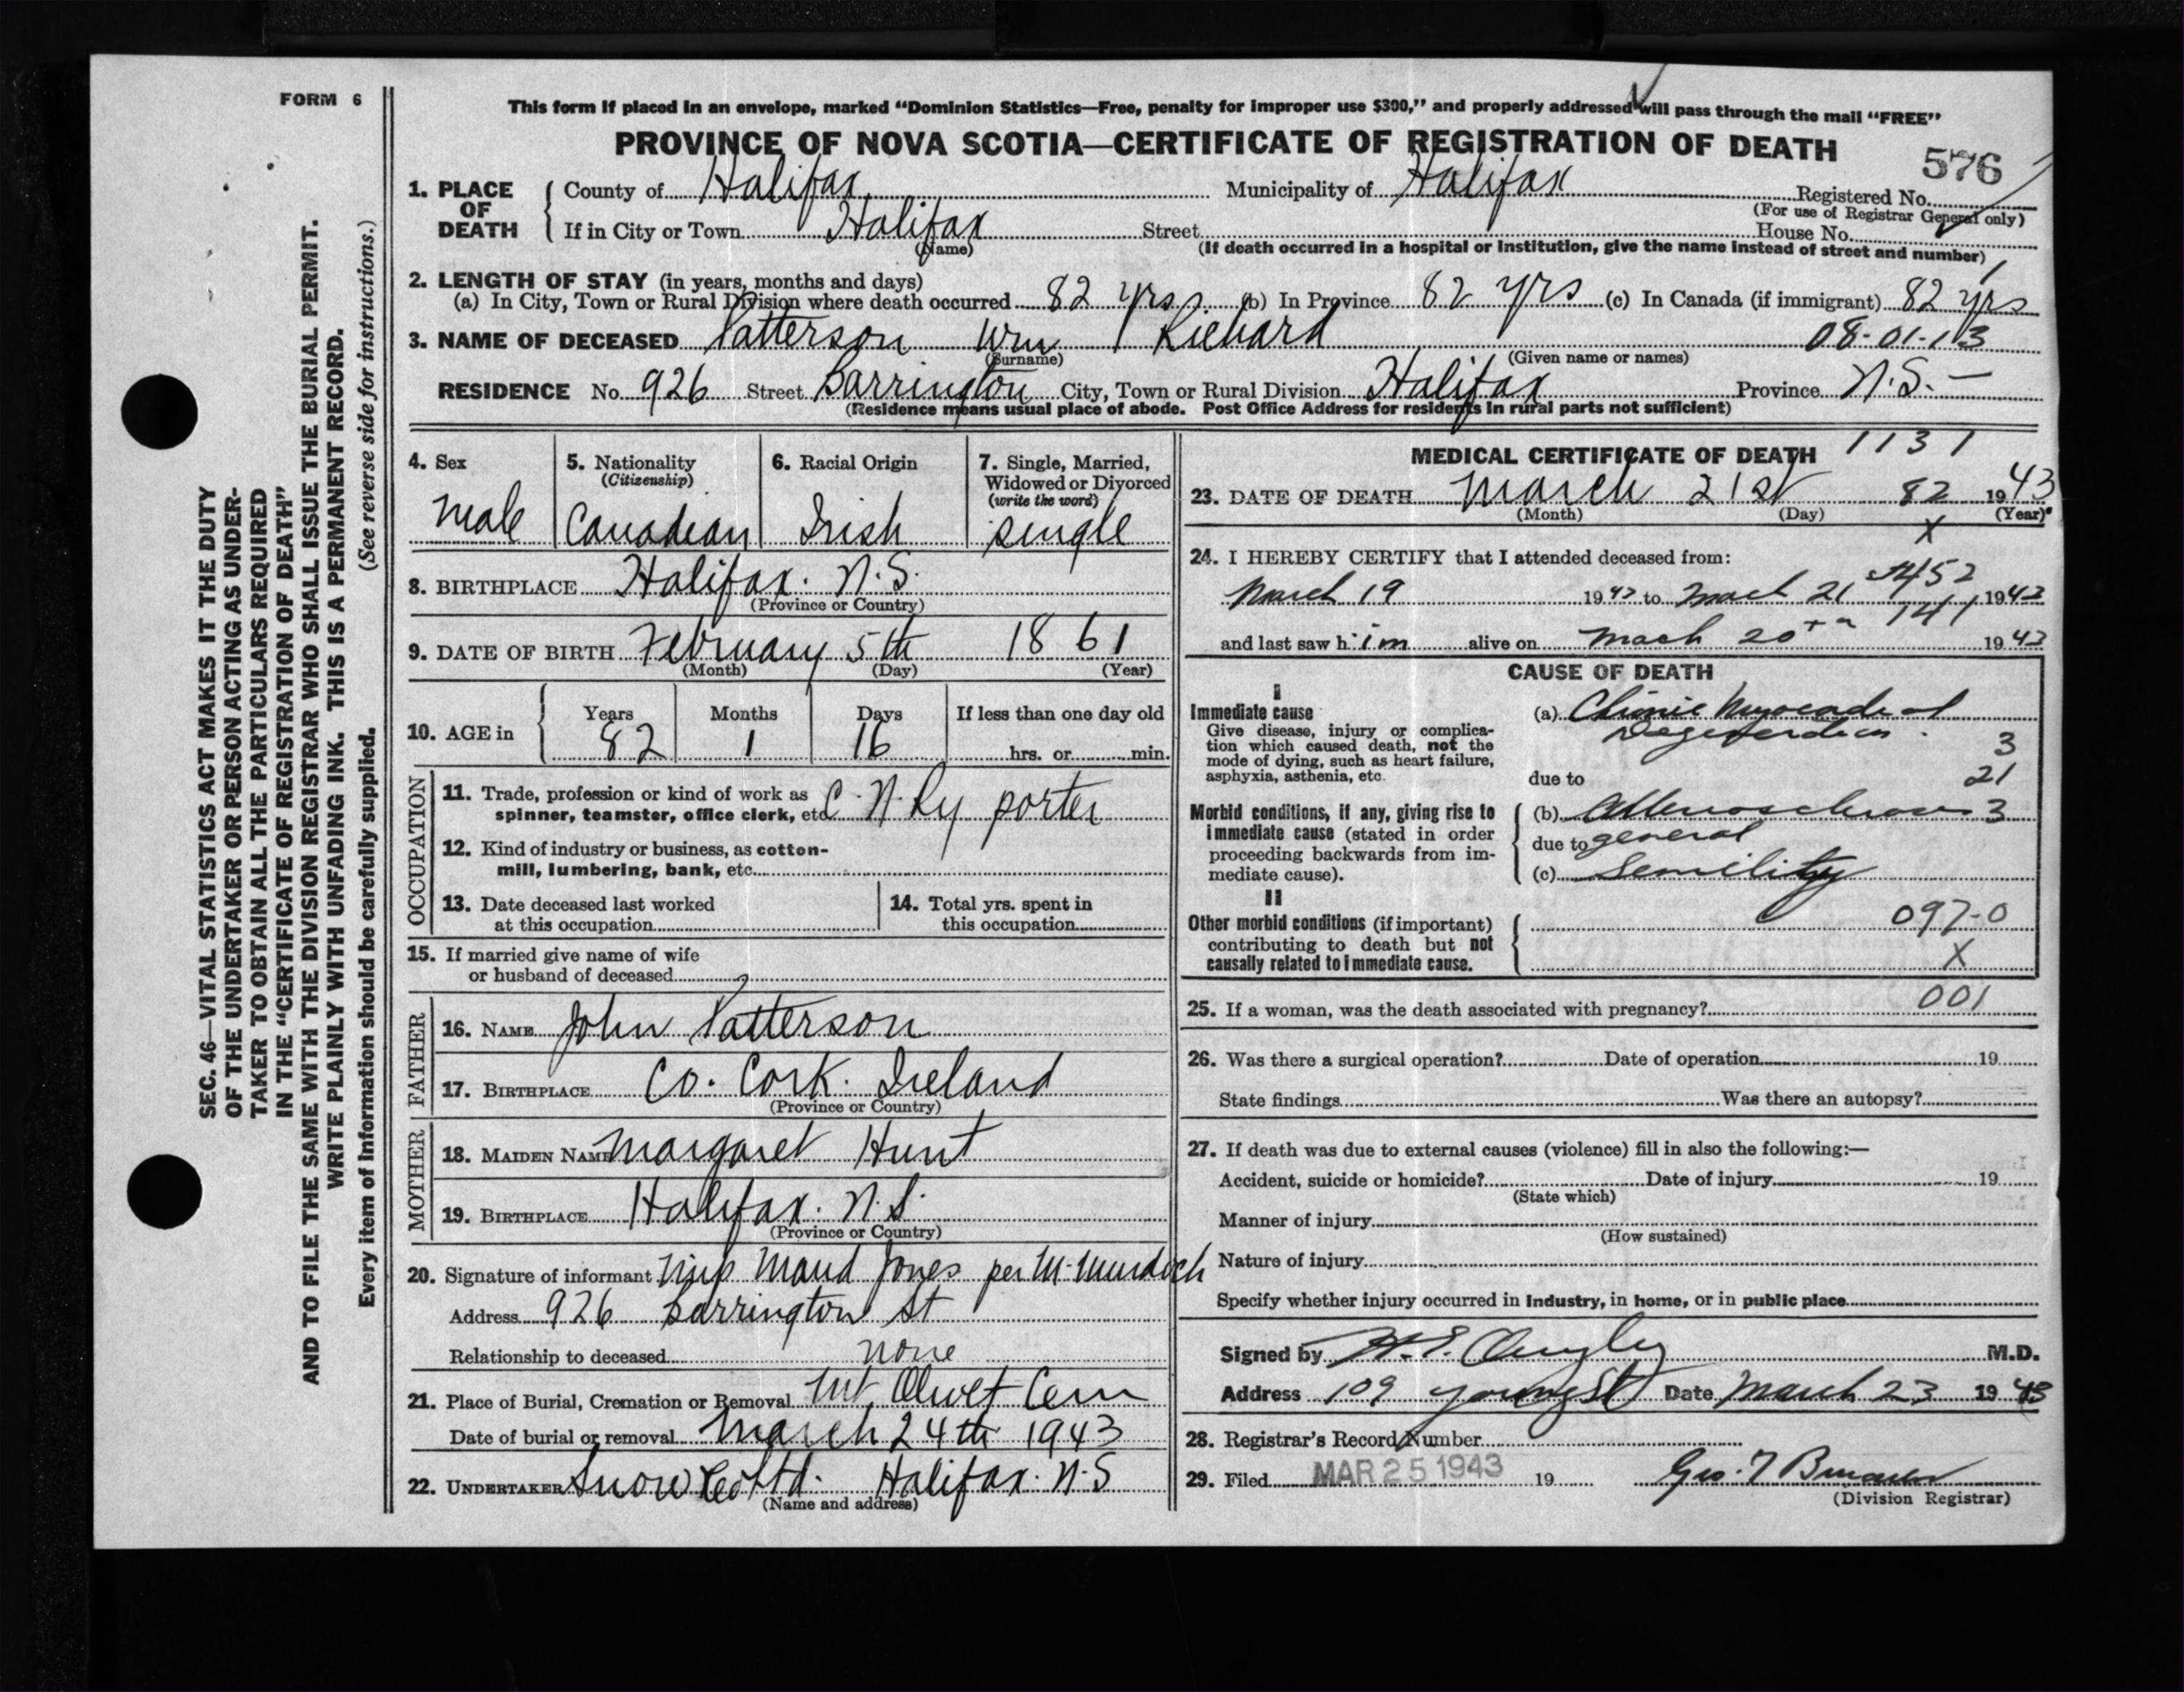 FORM 6
This form if placed in an envelope, marked “Dominion Statistics—Free, penalty for improper use $300,” and properly addressed will pass through the mail “FREE”
PROVINCE OF NOVA SCOTIA—CERTIFICATE OF REGISTRATION OF DEATH
576
1. PLACE OF DEATH County of Halifax Municipality of Halifax Registered No.
(For use of Registrar General only)
If in City or Town Halifax Street House No.
(Name) (If death occurred in a hospital or institution, give the name instead of street and number)
2. LENGTH OF STAY (in years, months and days)
(a) In City, Town or Rural Division where death occurred 82 yrs (b) In Province 82 yrs (c) In Canada (if immigrant) 82 yrs
3. NAME OF DECEASED Patterson Wm Richard 08-01-13
(Surname) (Given name or names)
RESIDENCE No. 926 Street Barrington City, Town or Rural Division Halifax Province N.S. —
(Residence means usual place of abode. Post Office Address for residents in rural parts not sufficient)
4. Sex 5. Nationality 6. Racial Origin 7. Single, Married,
(Citizenship) Widowed or Divorced
(write the word)
male Canadian Irish single
8. BIRTHPLACE Halifax. N.S.
(Province or Country)
9. DATE OF BIRTH February 5th 1861
(Month) (Day) (Year)
10. AGE in Years Months Days If less than one day old
82 1 16 hrs. or min.
OCCUPATION
11. Trade, profession or kind of work as C.N.Ry porter
spinner, teamster, office clerk, etc.
12. Kind of industry or business, as cotton-
mill, lumbering, bank, etc.
13. Date deceased last worked 14. Total yrs. spent in
at this occupation this occupation
15. If married give name of wife
or husband of deceased
FATHER
16. NAME John Patterson
17. BIRTHPLACE Co. Cork. Ireland
(Province or Country)
MOTHER
18. MAIDEN NAME Margaret Hunt
19. BIRTHPLACE Halifax. N.S.
(Province or Country)
20. Signature of informant Miss Maud Jones per M. Murdoch
Address 926 Barrington St
Relationship to deceased none
21. Place of Burial, Cremation or Removal Mt Olivet Cem
Date of burial or removal March 24th 1943
22. UNDERTAKER Snow & Co Ltd. Halifax. N.S
(Name and address)
MEDICAL CERTIFICATE OF DEATH 1131
23. DATE OF DEATH March 21st 82 1943
(Month) (Day) (Year)
X
24. I HEREBY CERTIFY that I attended deceased from:
452
March 19 1943 to March 21 1943
141
and last saw him alive on March 20th 1943
CAUSE OF DEATH
I
Immediate cause
Give disease, injury or complica-
tion which caused death, not the
mode of dying, such as heart failure,
asphyxia, asthenia, etc.
(a) Chronic Myocardial
Degeneration.
3
due to 21
Morbid conditions, if any, giving rise to
immediate cause (stated in order
proceeding backwards from im-
mediate cause).
(b) Arteriosclerosis 3
due to general
(c) Senility
II
Other morbid conditions (if important)
contributing to death but not
causally related to immediate cause.
097-0
X
001
25. If a woman, was the death associated with pregnancy?
26. Was there a surgical operation? Date of operation 19
State findings Was there an autopsy?
27. If death was due to external causes (violence) fill in also the following:—
Accident, suicide or homicide? Date of injury 19
(State which)
Manner of injury
(How sustained)
Nature of injury
Specify whether injury occurred in industry, in home, or in public place
Signed by M.D.
Address 109 Young St Date March 23 1943
28. Registrar's Record Number
29. Filed MAR 25 1943 19 Geo. T
(Division Registrar)
SEC. 46—VITAL STATISTICS ACT MAKES IT THE DUTY
OF THE UNDERTAKER OR PERSON ACTING AS UNDER-
TAKER TO OBTAIN ALL THE PARTICULARS REQUIRED
IN THE “CERTIFICATE OF REGISTRATION OF DEATH”
AND TO FILE THE SAME WITH THE DIVISION REGISTRAR WHO SHALL ISSUE THE BURIAL PERMIT.
WRITE PLAINLY WITH UNFADING INK. THIS IS A PERMANENT RECORD.
Every item of information should be carefully supplied. (See reverse side for instructions.)